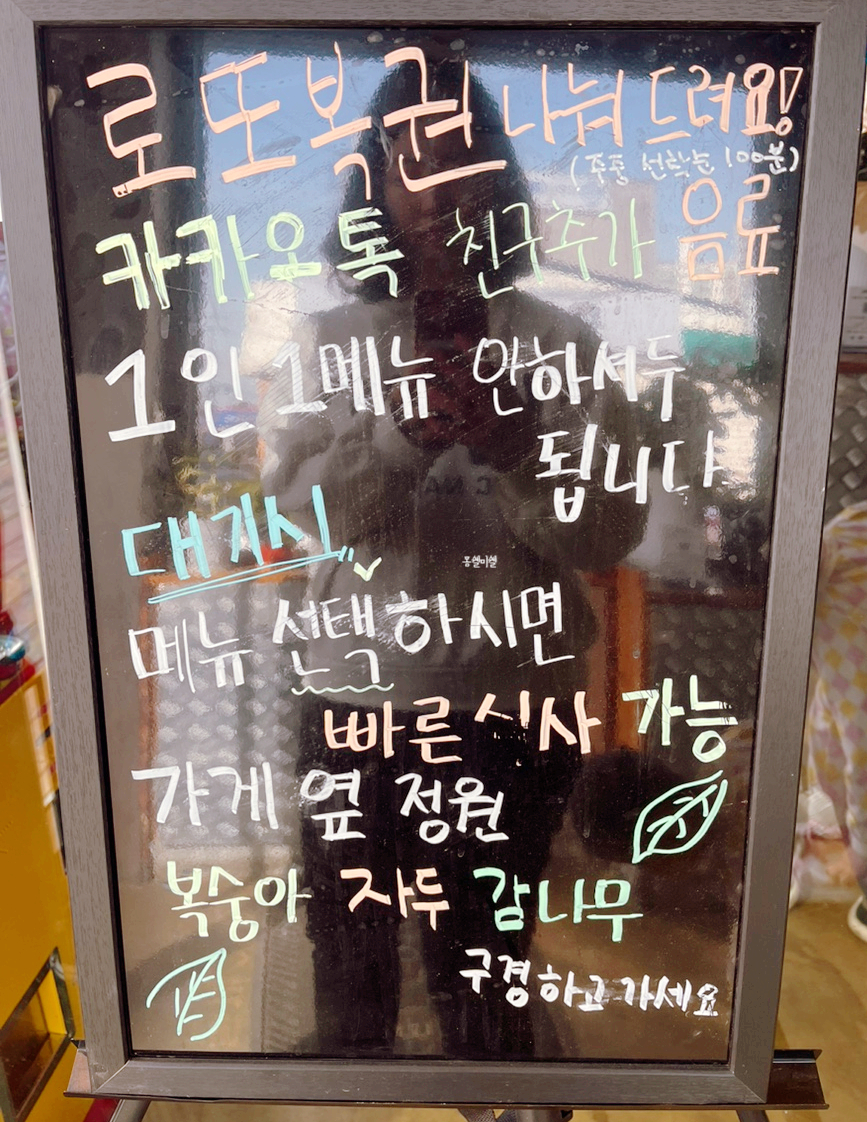 로또복권 나눠 드려요!
(주중 선착순 100분)
카카오톡 친구추가 음료
1인 1메뉴 안하셔두
됩니다
대기시
메뉴 선택 하시면
빠른 식사 가능
가게 옆 정원
복숭아 자두 감나무
구경하고 가세요
몽쉘미쉘